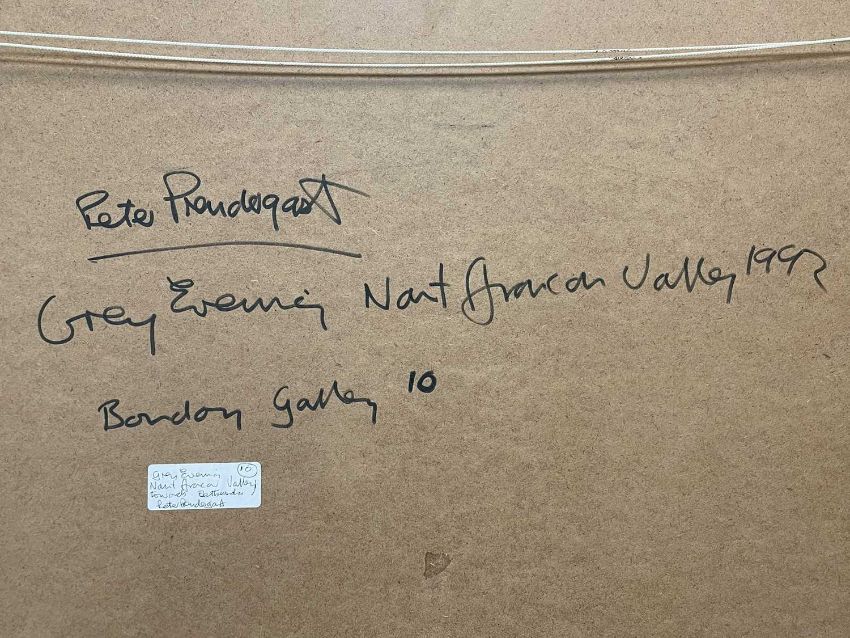 Peter Prendergast
Grey Evening Nant Francon Valley 1992
Boundary Gallery 10
Grey Evening 10
Nant Francon Valley
towards Bethesda
Peter Prendergast